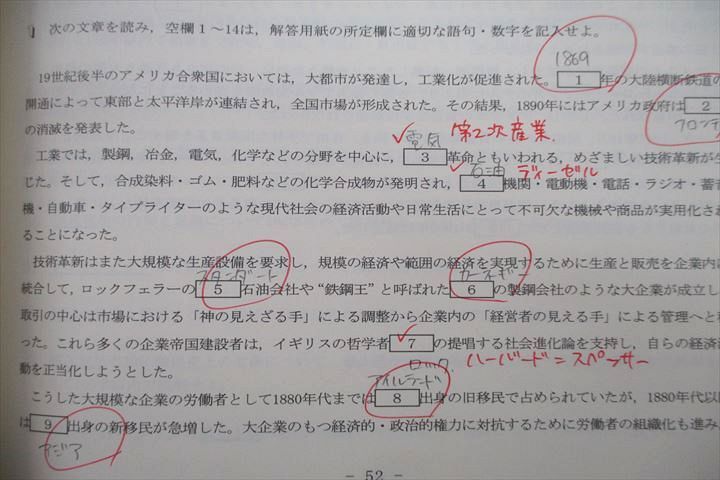 次の文章を読み，空欄1～14は，解答用紙の所定欄に適切な語句・数字を記入せよ。
1869
19世紀後半のアメリカ合衆国においては，大都市が発達し，工業化が促進された。 1 年の大陸横断鉄道の
開通によって東部と太平洋岸が連結され，全国市場が形成された。その結果，1890年にはアメリカ政府は 2
フロンテ
の消滅を発表した。
電気 第2次産業.
工業では，製鋼，冶金，電気，化学などの分野を中心に， 3 革命ともいわれる，めざましい技術革新が生
石油 ディーゼル
じた。そして，合成染料・ゴム・肥料などの化学合成物が発明され， 4 機関・電動機・電話・ラジオ・蓄音
機・自動車・タイプライターのような現代社会の経済活動や日常生活にとって不可欠な機械や商品が実用化され
ることになった。
技術革新はまた大規模な生産設備を要求し，規模の経済や範囲の経済を実現するために生産と販売を企業内に
スタンダート カーネギー
統合して，ロックフェラーの 5 石油会社や“鉄鋼王”と呼ばれた 6 の製鋼会社のような大企業が成立し
取引の中心は市場における「神の見えざる手」による調整から企業内の「経営者の見える手」による管理へと移
った。これら多くの企業帝国建設者は，イギリスの哲学者 7 の提唱する社会進化論を支持し，自らの経済活
ロック. ハーバード＝スペンサー
動を正当化しようとした。
アイルランド
こうした大規模な企業の労働者として1880年代までは 8 出身の旧移民で占められていたが，1880年代以
は 9 出身の新移民が急増した。大企業のもつ経済的・政治的権力に対抗するために労働者の組織化も進み
アジア
- 52 -